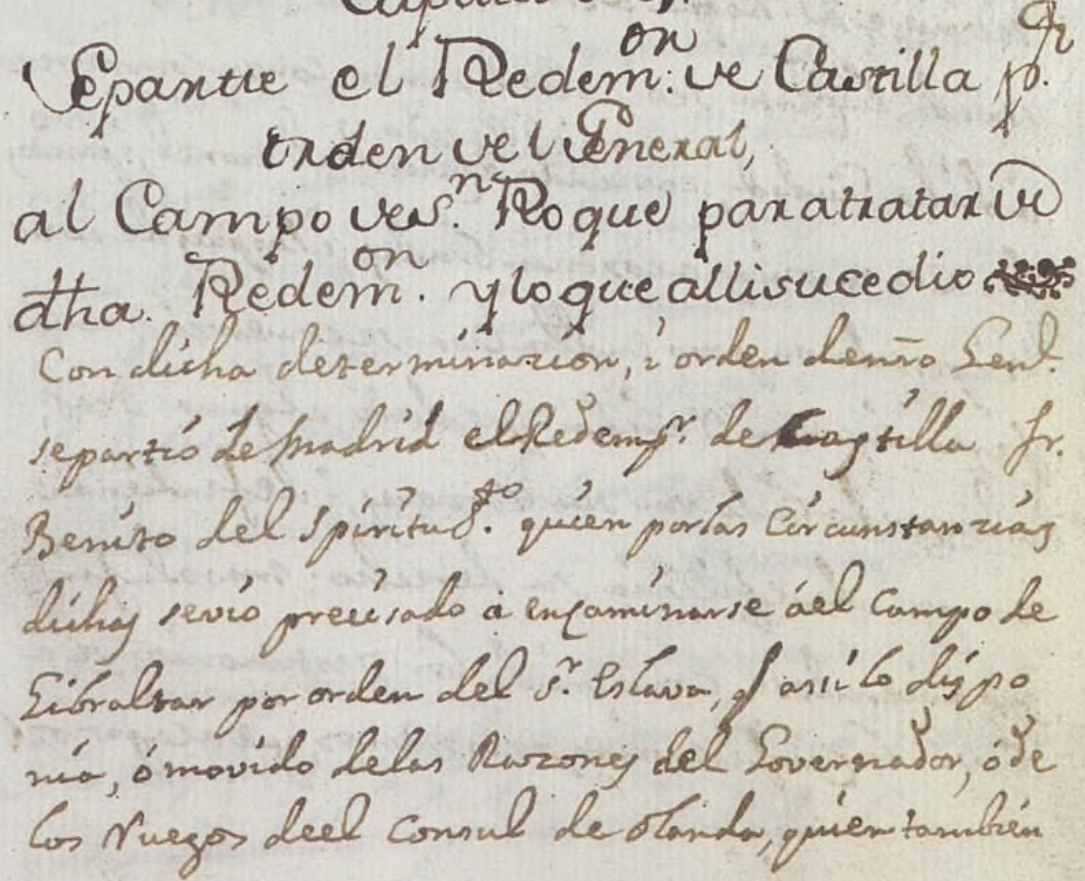 Separtte el Redem.on de Castilla p.r
orden del General,
al Campo de S.n Roque para tratar de
dha. Redem.on y lo que alli sucedio
Con dicha determinazion, i orden de nro Genl.
se partio de Madrid el Redemp.r de Castilla Fr.
Benito del Spiritu S.to quien por las Circunstanzias
dichas se vio precisado a encaminarse á el Campo de
Gibraltar por orden del S.r Eslava, q assi lo dispo
nia, ó movido de las Razones del Governador, ó de
los Ruegos de el Consul de Olanda, quien tambien